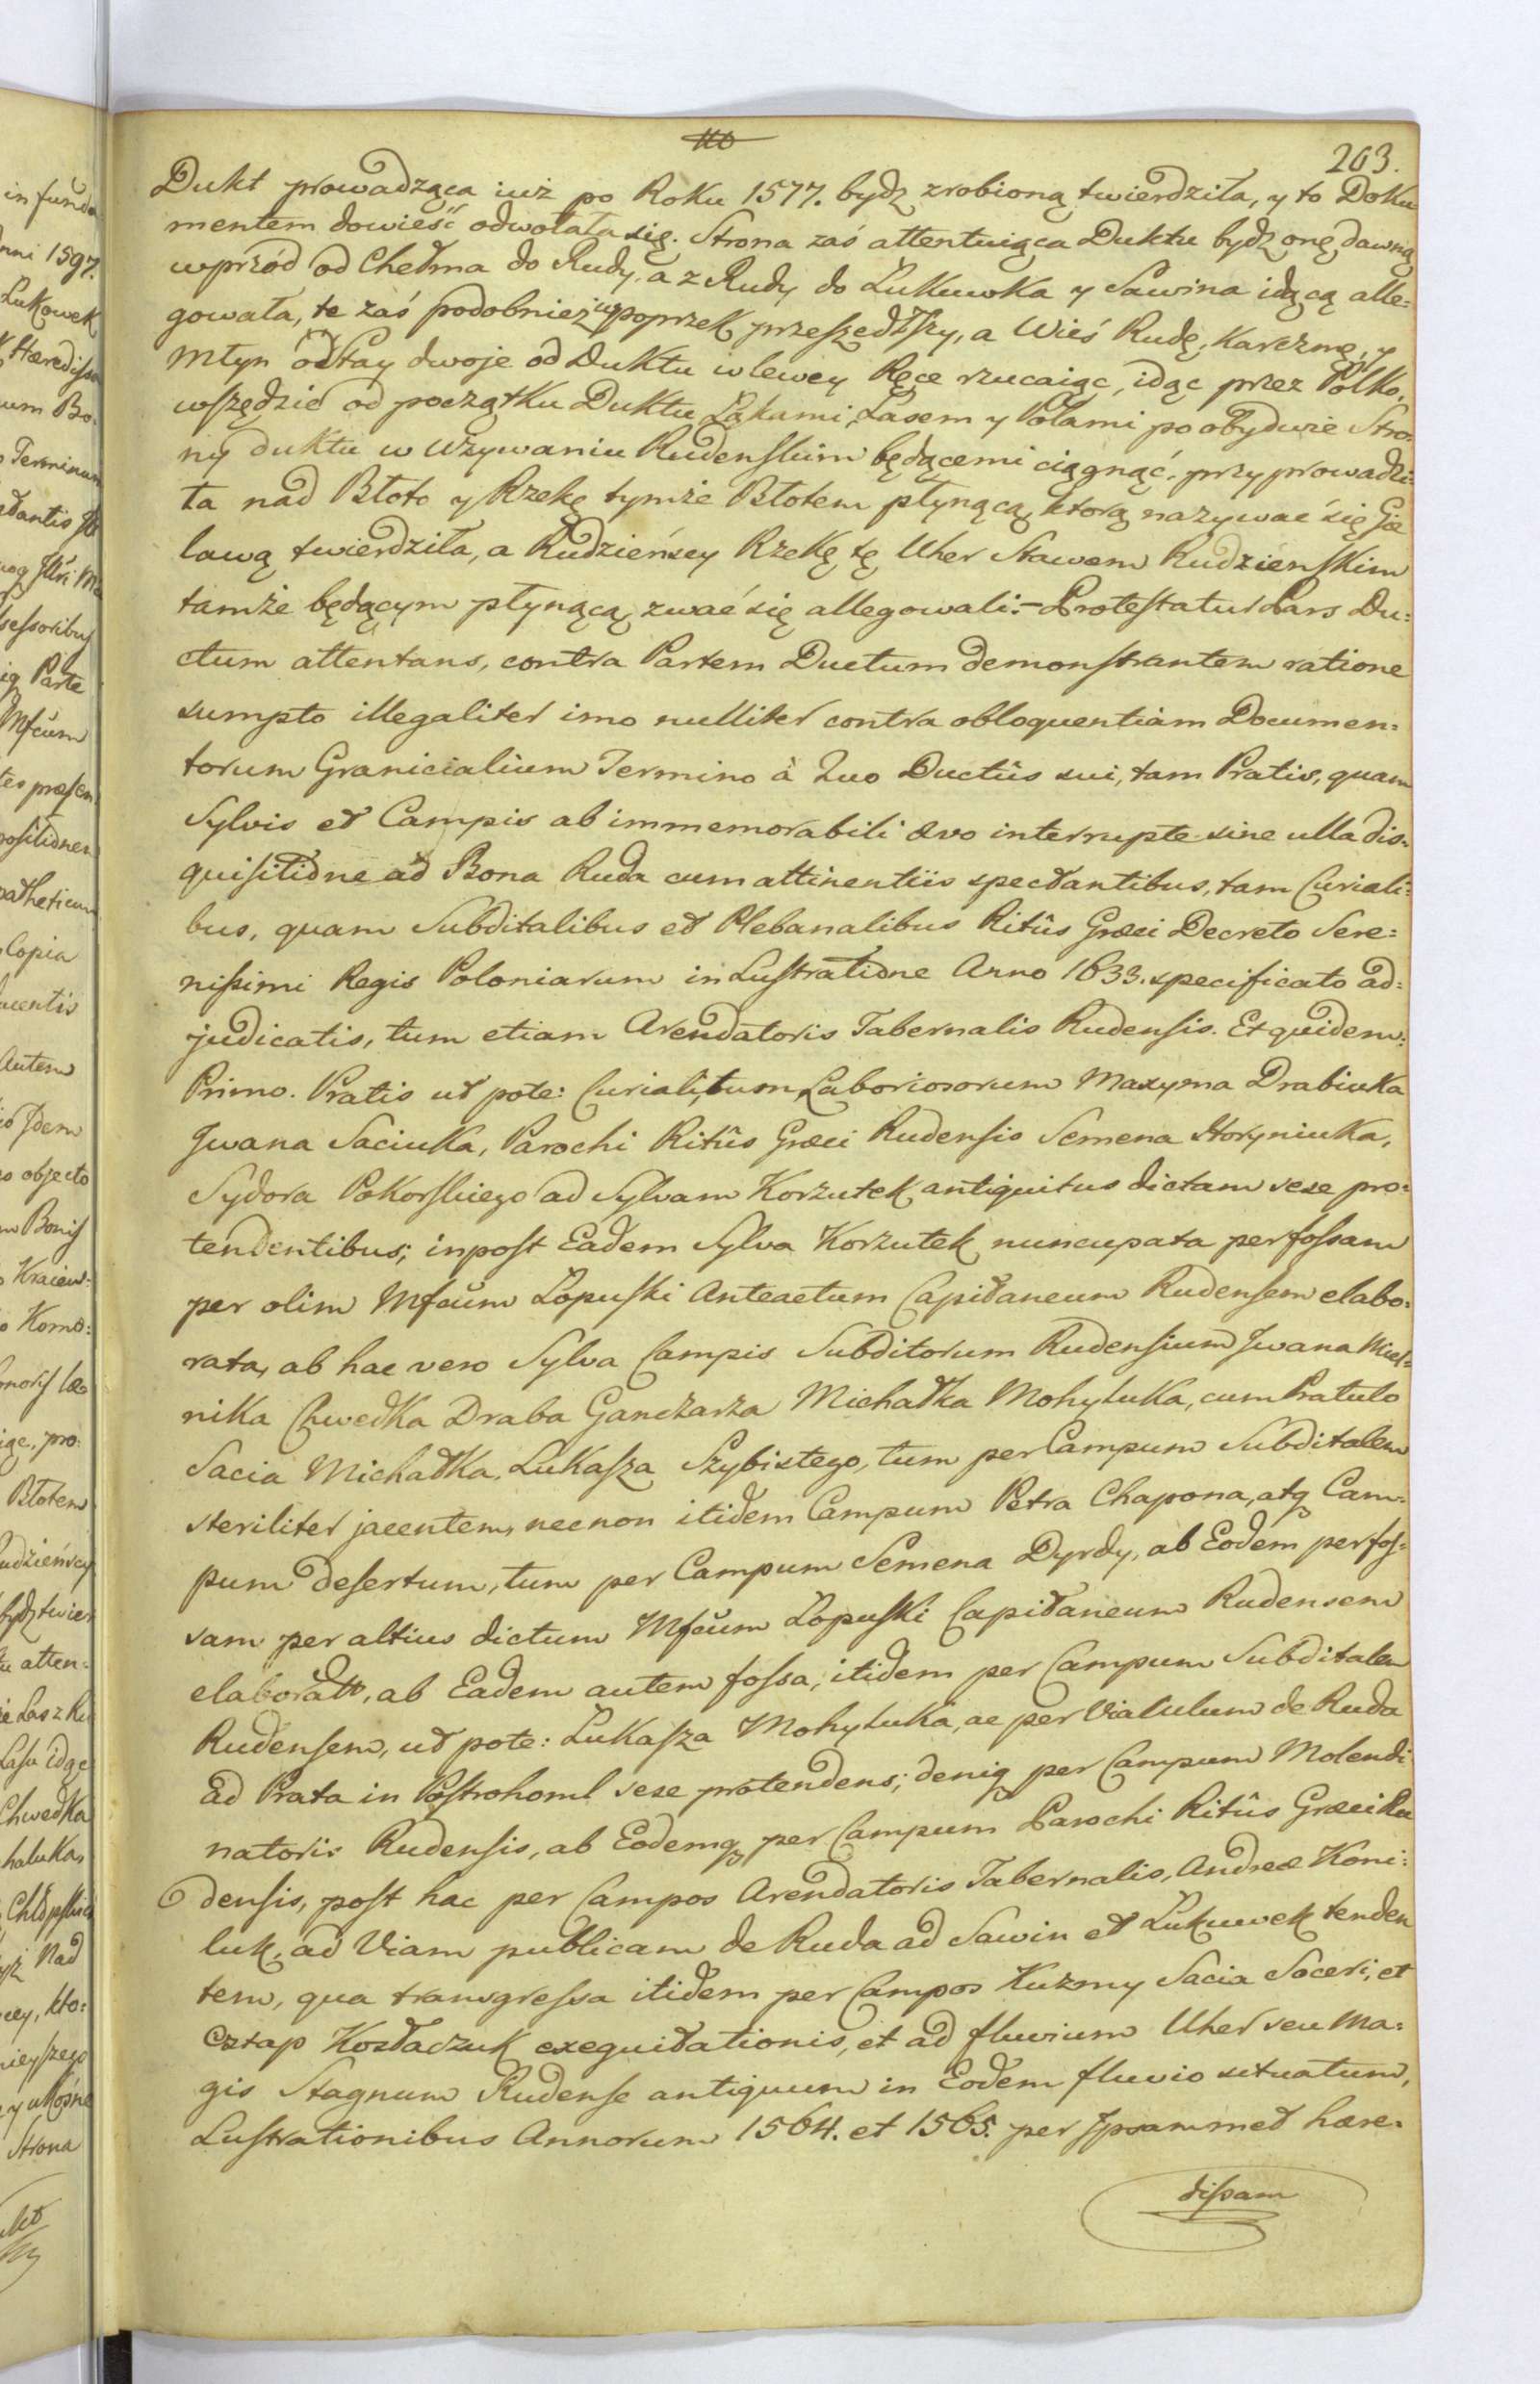 263.
Dukt prowadząca iuż po Roku 1577. bydz zrobioną twierdziła, y to Doku
mentem dowieść odwołała się. Strona zaś attentuiąca Duktu bydz onę dawną
wprzód od Chełma do Rudy, a z Rudy do Łukuwka y Sawina idącą alle-
gowała, te zaś podobnież iuż poprzek przeszedłszy, a Wieś Rudę, Karczmę, y
Młyn od Stay dwoje od Duktu w lewey Ręce rzucaiąc, idąc przez Polko,
wszędzie od początku Duktu Łąkami, Lasem y Polami po obydwie Stro-
ny duktu w Używaniu Rudenskim będącemi ciągnąć, przyprowadzi-
ła nad Błoto y Rzekę tymże Błotem płynącą, ktorą nazywać się Gie
lawą twierdziła, a Rudzieńscy Rzekę tę Uher Stawem Rudzienskim
tamże będącym płynącą, zwać się allegowali. - Protestatur Pars Du-
ctum attentans, contra Partem Ductum demonstrantem ratione
sumpto illegaliter imo nulliter contra obloquentiam Documen-
torum Granicialium Termino à Quo Ductûs sui, tam Pratis, quam
Sylvis et Campis ab immemorabili ævo interrupte sine ulla dis-
quisitione ad Bona Ruda cum attinentiis spectantibus, tam Curiali-
bus, quam Subditalibus et Plebanalibus Ritûs Græci Decreto Sere-
nissimi Regis Poloniarum in Lustratione Anno 1633. specificato ad-
judicatis, tum etiam Arendatoris Tabernalis Rudensis. Et quidem:
Primo. Pratis ut pote: Curiali, tum Laboriosorum Maxyma Drabiuka
Jwana Saciuka, Parochi Ritûs Græci Rudensis Semena Horyniuka,
Sydora Pokorskiego ad Sylvam Korzutek antiquitus dictam sese pro-
tendentibus; inpost Eadem Sylva Korzutek nuncupata per fossam
per olim Mfcum Łopuski Anteactum Capitaneum Rudensem elabo-
rata, ab hac vero Sylva Campis Subditorum Rudensium Jwana Miel-
nika Chwedka Draba Ganczarza Michałka Mohyluka, cum Pratulo
Sacia Michałka, Łukasza Szybistego, tum per Campum Subditalem
steriliter jacentem, necnon itidem Campum Petra Chapona, atq Cam-
pum desertum, tum per Campum Semena Dyrdy, ab Eodem per fos-
sam per altius dictum Mfcum Łopuski Capitaneum Rudensem
elaborata, ab Eadem autem fossa, itidem per Campum Subditalem
Rudensem, ut pote: Łukasza Mohyluka, ac per Vialulum de Ruda
ad Prata in Postrohoml sese protendens; deniq per Campum Molendi
natoris Rudensis, ab Eodemq per Campum Parochi Ritûs Græci Ru
densis, post hac per Campos Arendatoris Tabernalis, Andreæ Koni-
luk, ad Viam publicam de Ruda ad Sawin et Łukuwek tenden
tem, qua transgressa itidem per Campos Kuzmy Sacia Soceri, et
Eztap Kozłaczuk exequitationis, et ad fluvium Uher seu Ma-
gis Stagnum Rudense antiquum in Eodem fluvio situatum,
Lustrationibus Annorum 1564. et 1565. per Jpsammet hære-
dissam